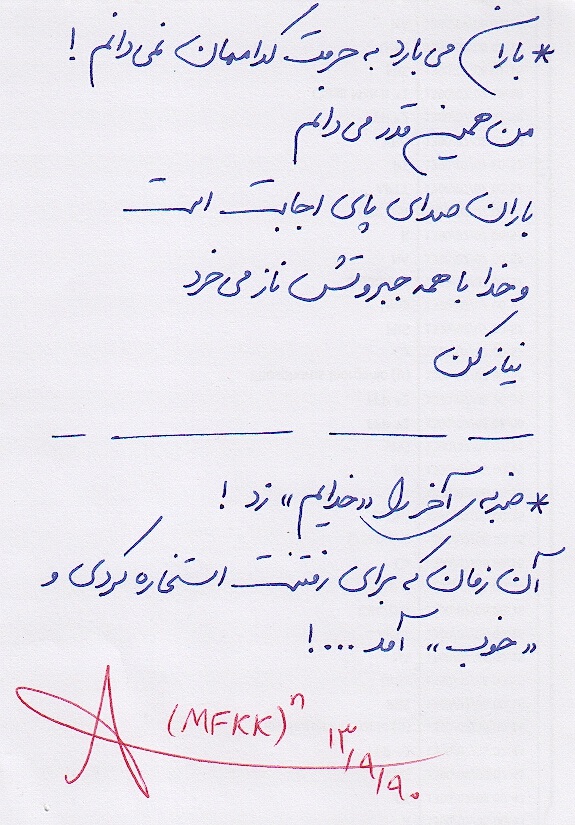 * باران می بارد به حرمت کداممان نمی دانم !
من همین قدر می دانم
باران صدای پای اجابت است
و خدا با همه جبروتش ناز می خرد
نیاز کن
* ضربه ی آخر را «خدایم» زد !
آن زمان که برای رفتنت استخاره کردی و
«خوب» آمد ...!
(MFKK)ⁿ ۱۳/۹/۹۰